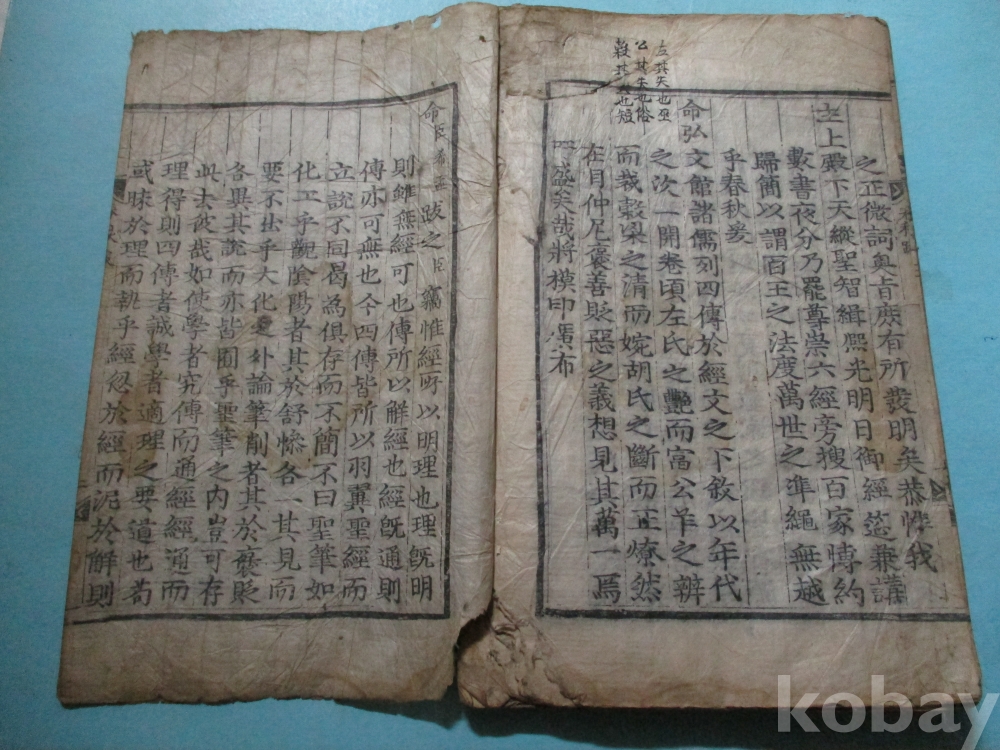 左其失也巫
公其失也俗
穀其也短
之正微詞奧旨庶有所發明矣恭惟我
主上殿下天縱聖智緝熙光明日御經筵兼講
數書夜分乃罷尊崇六經旁搜百家博約
歸簡以謂百王之法度萬世之準繩無越
乎春秋爰
命弘文館諸儒列四傳於經文之下敘以年代
之次一開卷頃左氏之艶而富公羊之辨
而裁穀梁之清而婉胡氏之斷而正燎然
在目仲尼褒善貶惡之義想見其萬一焉
盛矣哉將模印廣布
命臣跋之臣竊惟經所以明理也理旣明
則雖無經可也傳所以解經也經旣通則
傳亦可無也今四傳皆所以羽翼聖經而
立說不同曷爲俱存而不簡不曰聖筆如
化工乎觀陰陽者其於舒慘各一其見而
要不出乎大化之外論筆削者其於褒貶
各異其說而亦皆囿乎聖筆之內豈可存
此去彼哉如使學者究傳而通經經通而
理得則四傳者誠學者適理之要道也苟
或昧於理而執乎經忽於經而泥於解則
kobay